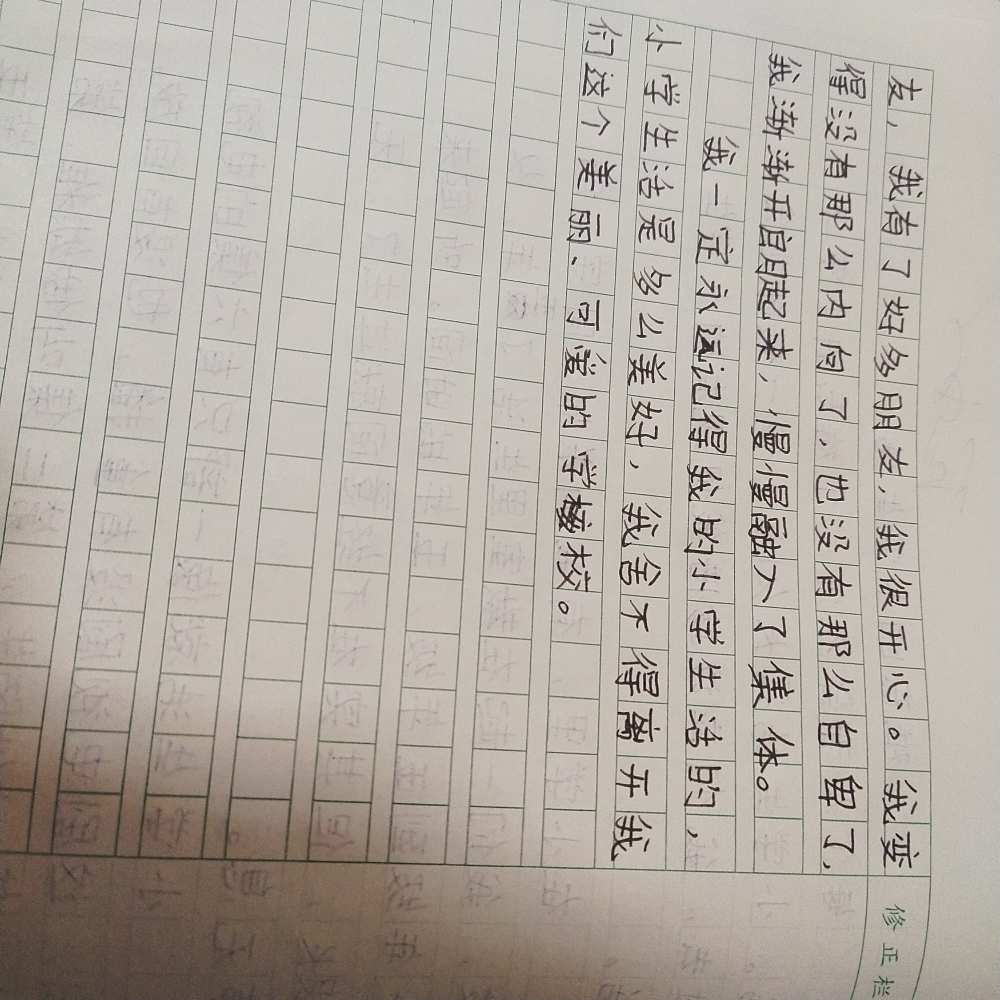 友，我有了好多朋友，我很开心。我变
得没有那么内向了，也没有那么自卑了，
我渐渐开朗起来，慢慢融入了集体。
我一定永远记得我的小学生活的，
小学生活是多么美好，我舍不得离开我
们这个美丽、可爱的学校。
修正栏